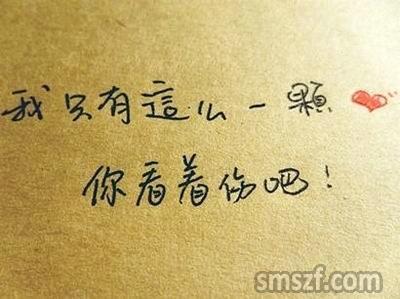 我只有這么一顆
你看着伤吧！
smszf.com